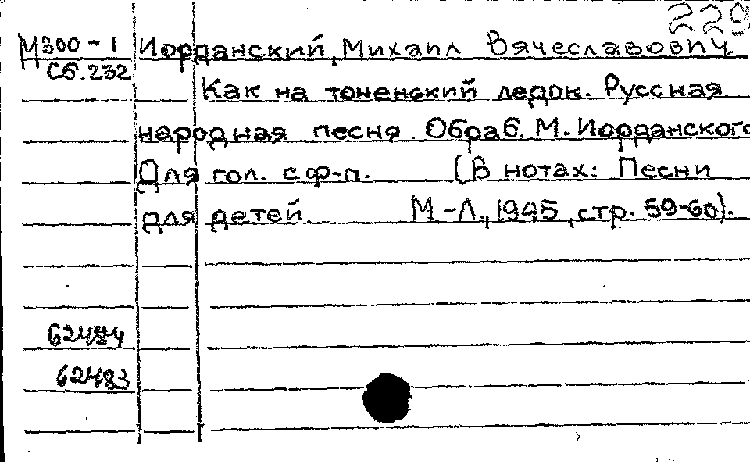 229
М300-1 Иорданский, Михаил Вячеславович
Сб.232
Как на тоненький ледок. Русская
народная песня. Обраб. М. Иорданского
Для гол. с ф-п. (В нотах: Песни
для детей. М-Л., 1945, стр. 59-60).
62484
62483